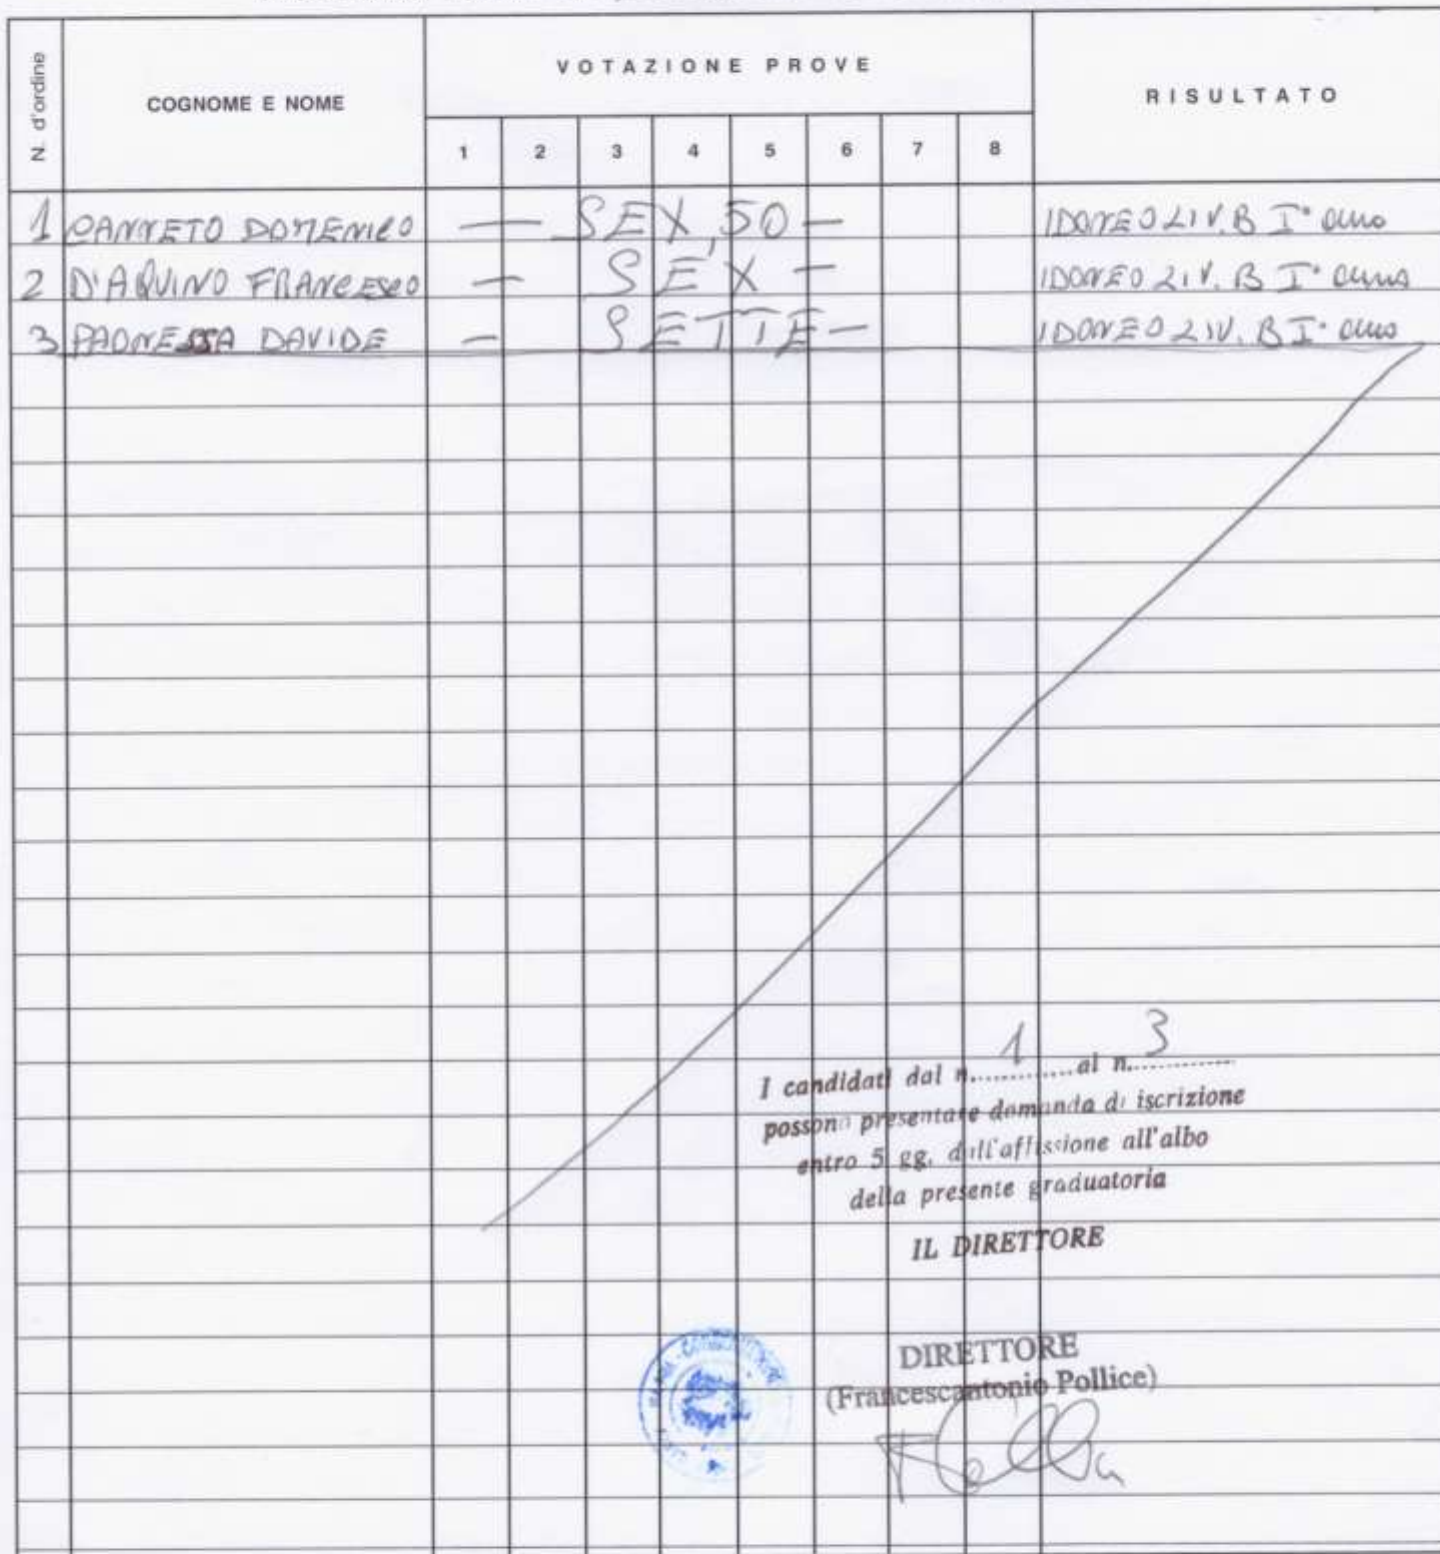 N. d'ordine
COGNOME E NOME
VOTAZIONE PROVE
RISULTATO
1 2 3 4 5 6 7 8
1 CANNETO DOMENICO — SEX,50 — IDONEO LIV. B I° anno
2 D'AQUINO FRANCESCO — SEX — IDONEO LIV. B I° anno
3 PAONESSA DAVIDE — SETTE — IDONEO LIV. B I° anno
I candidati dal n. 1 al n. 3
possono presentare domanda di iscrizione
entro 5 gg. dall'affissione all'albo
della presente graduatoria
IL DIRETTORE
DIRETTORE
(Francescantonio Pollice)